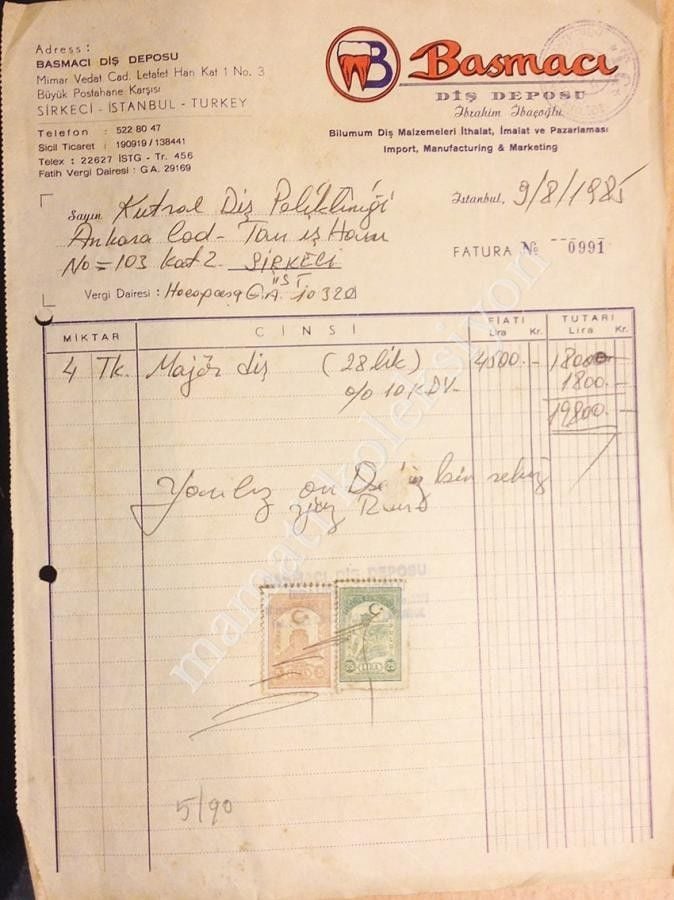 Adress :
BASMACI DİŞ DEPOSU
Mimar Vedat Cad. Letafet Han Kat 1 No. 3
Büyük Postahane Karşısı
SİRKECİ - İSTANBUL - TURKEY
Telefon : 522 80 47
Sicil Ticaret : 190919 / 138441
Telex : 22627 ISTG - Tr. 456
Fatih Vergi Dairesi : GA. 29169
B
Basmacı
DİŞ DEPOSU
İbrahim Abaçoğlu
Bilumum Diş Malzemeleri İthalat, İmalat ve Pazarlaması
Import, Manufacturing & Marketing
İstanbul, 9/8/1985
FATURA No 0991
Sayın Kutral Diş Polikliniği
Ankara Cad - Tan iş Hanı
No = 103 Kat 2 SİRKECİ
Vergi Dairesi : Hocapaşa G.A. 10320
MİKTAR CİNSİ FİATI Lira Kr. TUTARI Lira Kr.
4 Tk. Majör diş (28 lik) 4500.- 18000.-
% 10 KDV- 1800.-
19800.-
Yalnız on bin sekiz
yüz
5/90
mamatikoleksiyon